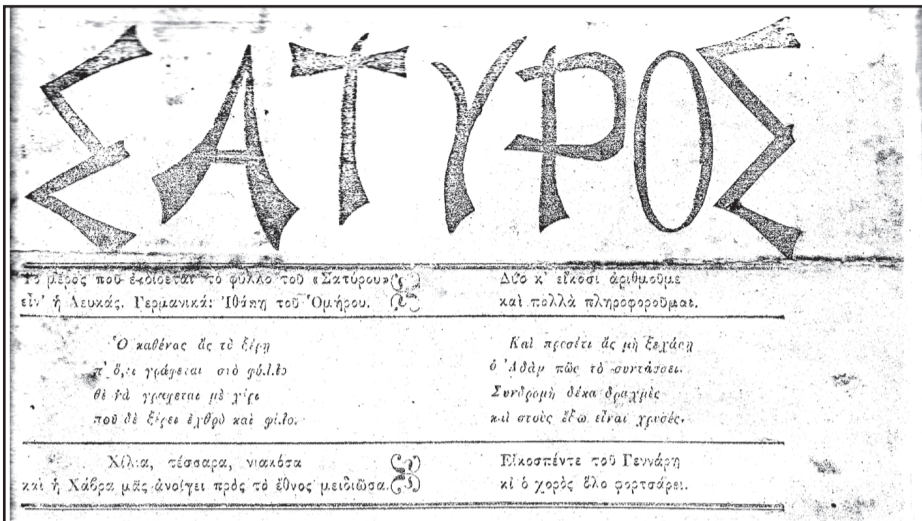 ΣΑΤΥΡΟΣ
Τὸ μέρος ποῦ ἐκδίδεται τὸ φύλλο τοῦ «Σατύρου»
εἶν' ἡ Λευκάς. Γερμανικά: Ἰθάκη τοῦ Ὁμήρου.
Δύο κ' εἴκοσι ἀριθμοῦμε
καὶ πολλὰ πληροφοροῦμε.
Ὁ καθένας ἂς τὸ ξέρῃ
π' ὅ,τι γράφεται στὸ φύλλο
θὲ νὰ γράφεται μὲ χέρι
ποῦ δὲ ξέρει ἐχθρὸ καὶ φίλο.
Καὶ προσέτι ἂς μὴ ξεχάσῃ
ὁ Ἀδὰμ πῶς τὸ συντάσσει.
Συνδρομὴ δέκα δραχμὲς
καὶ στοὺς ἔξω εἶναι χρυσές.
Χίλια, τέσσαρα, νιακόσα
καὶ ἡ Χάβρα μᾶς ἀνοίγει πρὸς τὸ ἔθνος μειδιῶσα.
Εἰκοσπέντε τοῦ Γεννάρη
κι ὁ χορὸς ὅλο φορτσάρει.